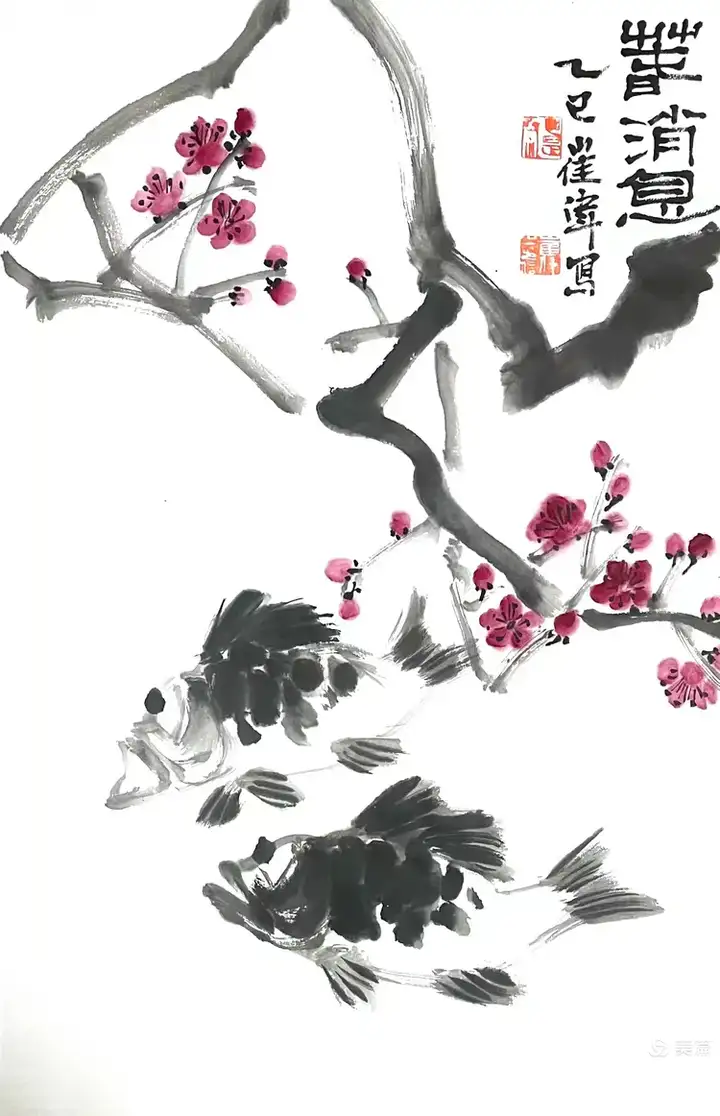 春消息
乙巳崔寫
美篇